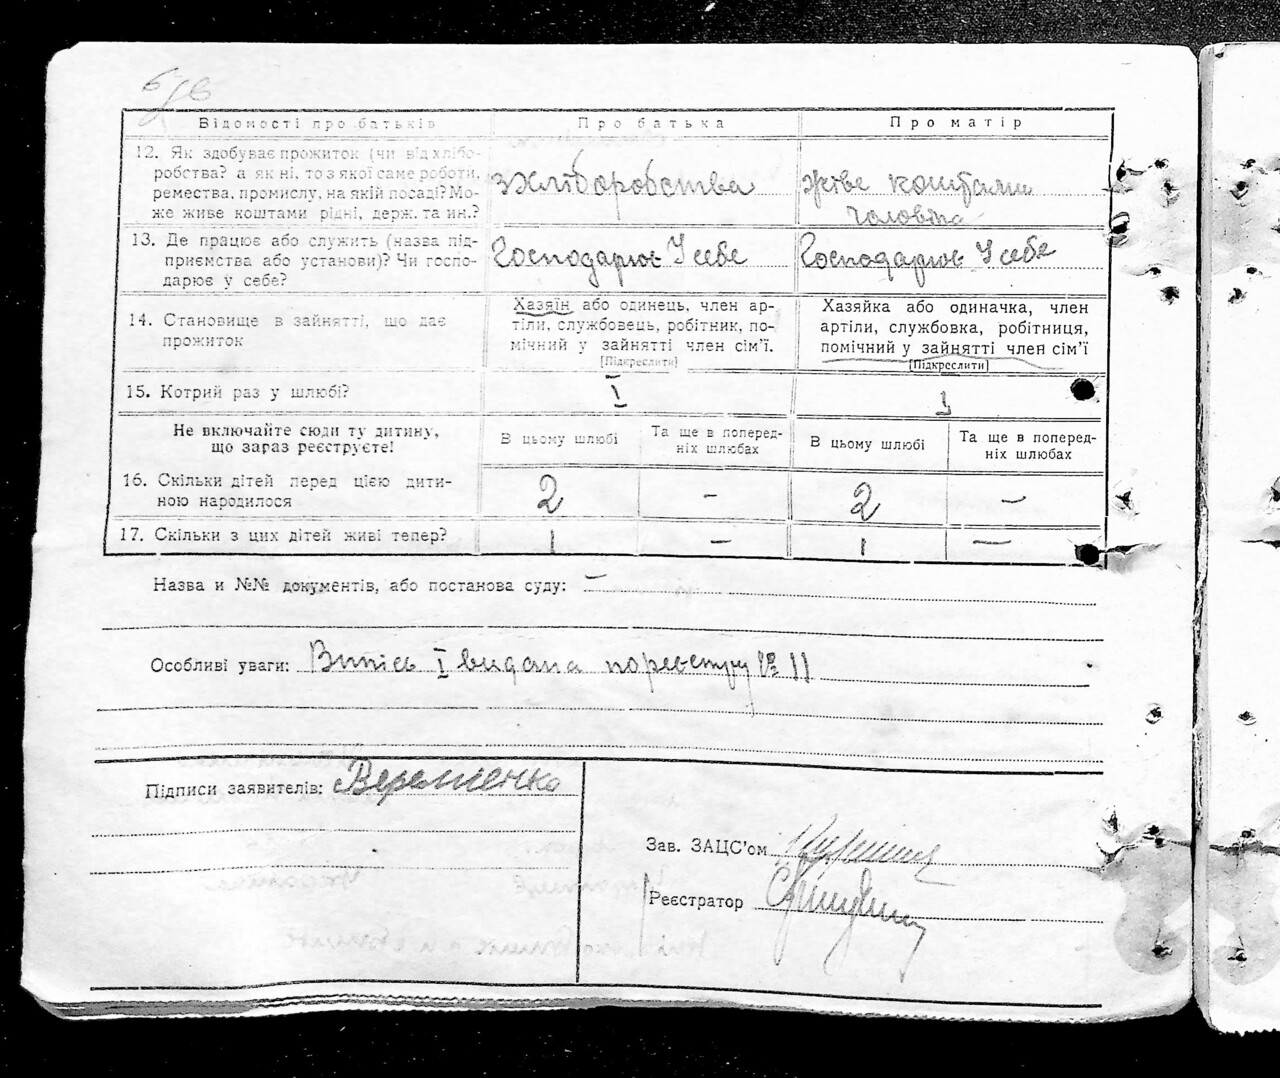 Відомості про батьків Про батька Про матір
12. Як здобуває прожиток (чи від хлібо-
робства? а як ні, то з якої саме роботи,
ремества, промислу, на якій посаді? Мо-
же живе коштами рідні, держ. та ин.?
з хліборобства
живе коштами
чоловіка
13. Де працює або служить (назва під-
приємства або установи)? Чи госпо-
дарює у себе?
Господарює У себе
Господарює У себе
14. Становище в зайнятті, що дає
прожиток
Хазяїн або одинець, член ар-
тіли, службовець, робітник, по-
мічний у зайнятті член сім'ї.
[Підкреслити]
Хазяйка або одиначка, член
артіли, службовка, робітниця,
помічний у зайнятті член сім'ї
[Підкреслити]
15. Котрий раз у шлюбі? I 1
Не включайте сюди ту дитину,
що зараз реєструєте!
В цьому шлюбі
Та ще в поперед-
ніх шлюбах
В цьому шлюбі
Та ще в поперед-
ніх шлюбах
16. Скільки дітей перед цією дити-
ною народилося
2 – 2 –
17. Скільки з цих дітей живі тепер? 1 – 1 –
Назва и №№ документів, або постанова суду: –
Особливі уваги: Випись I видана по реєстру № 11
Підписи заявителів: Веремієнко
Зав. ЗАЦС'ом
Реєстратор